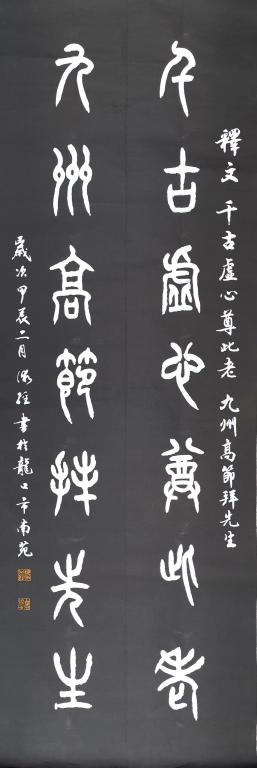 釋文 千古虛心尊此老 九州高節拜先生
千古虛心尊此老
九州高節拜先生
歲次甲辰二月 書於龍口市南苑